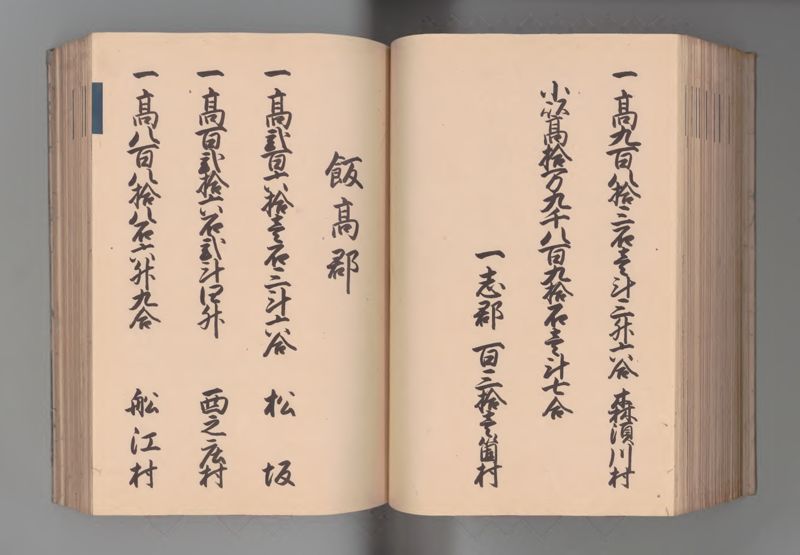 一高九百八拾三石壱斗三升六合 森須川村
小以高拾万九千八百九拾石壱斗七合
一志郡 百三拾壱箇村
飯高郡
一高弐百六拾壱石三斗六合 松坂
一高百弐拾六石弐斗四升 西之庄村
一高八百八拾八石六升九合 舩江村